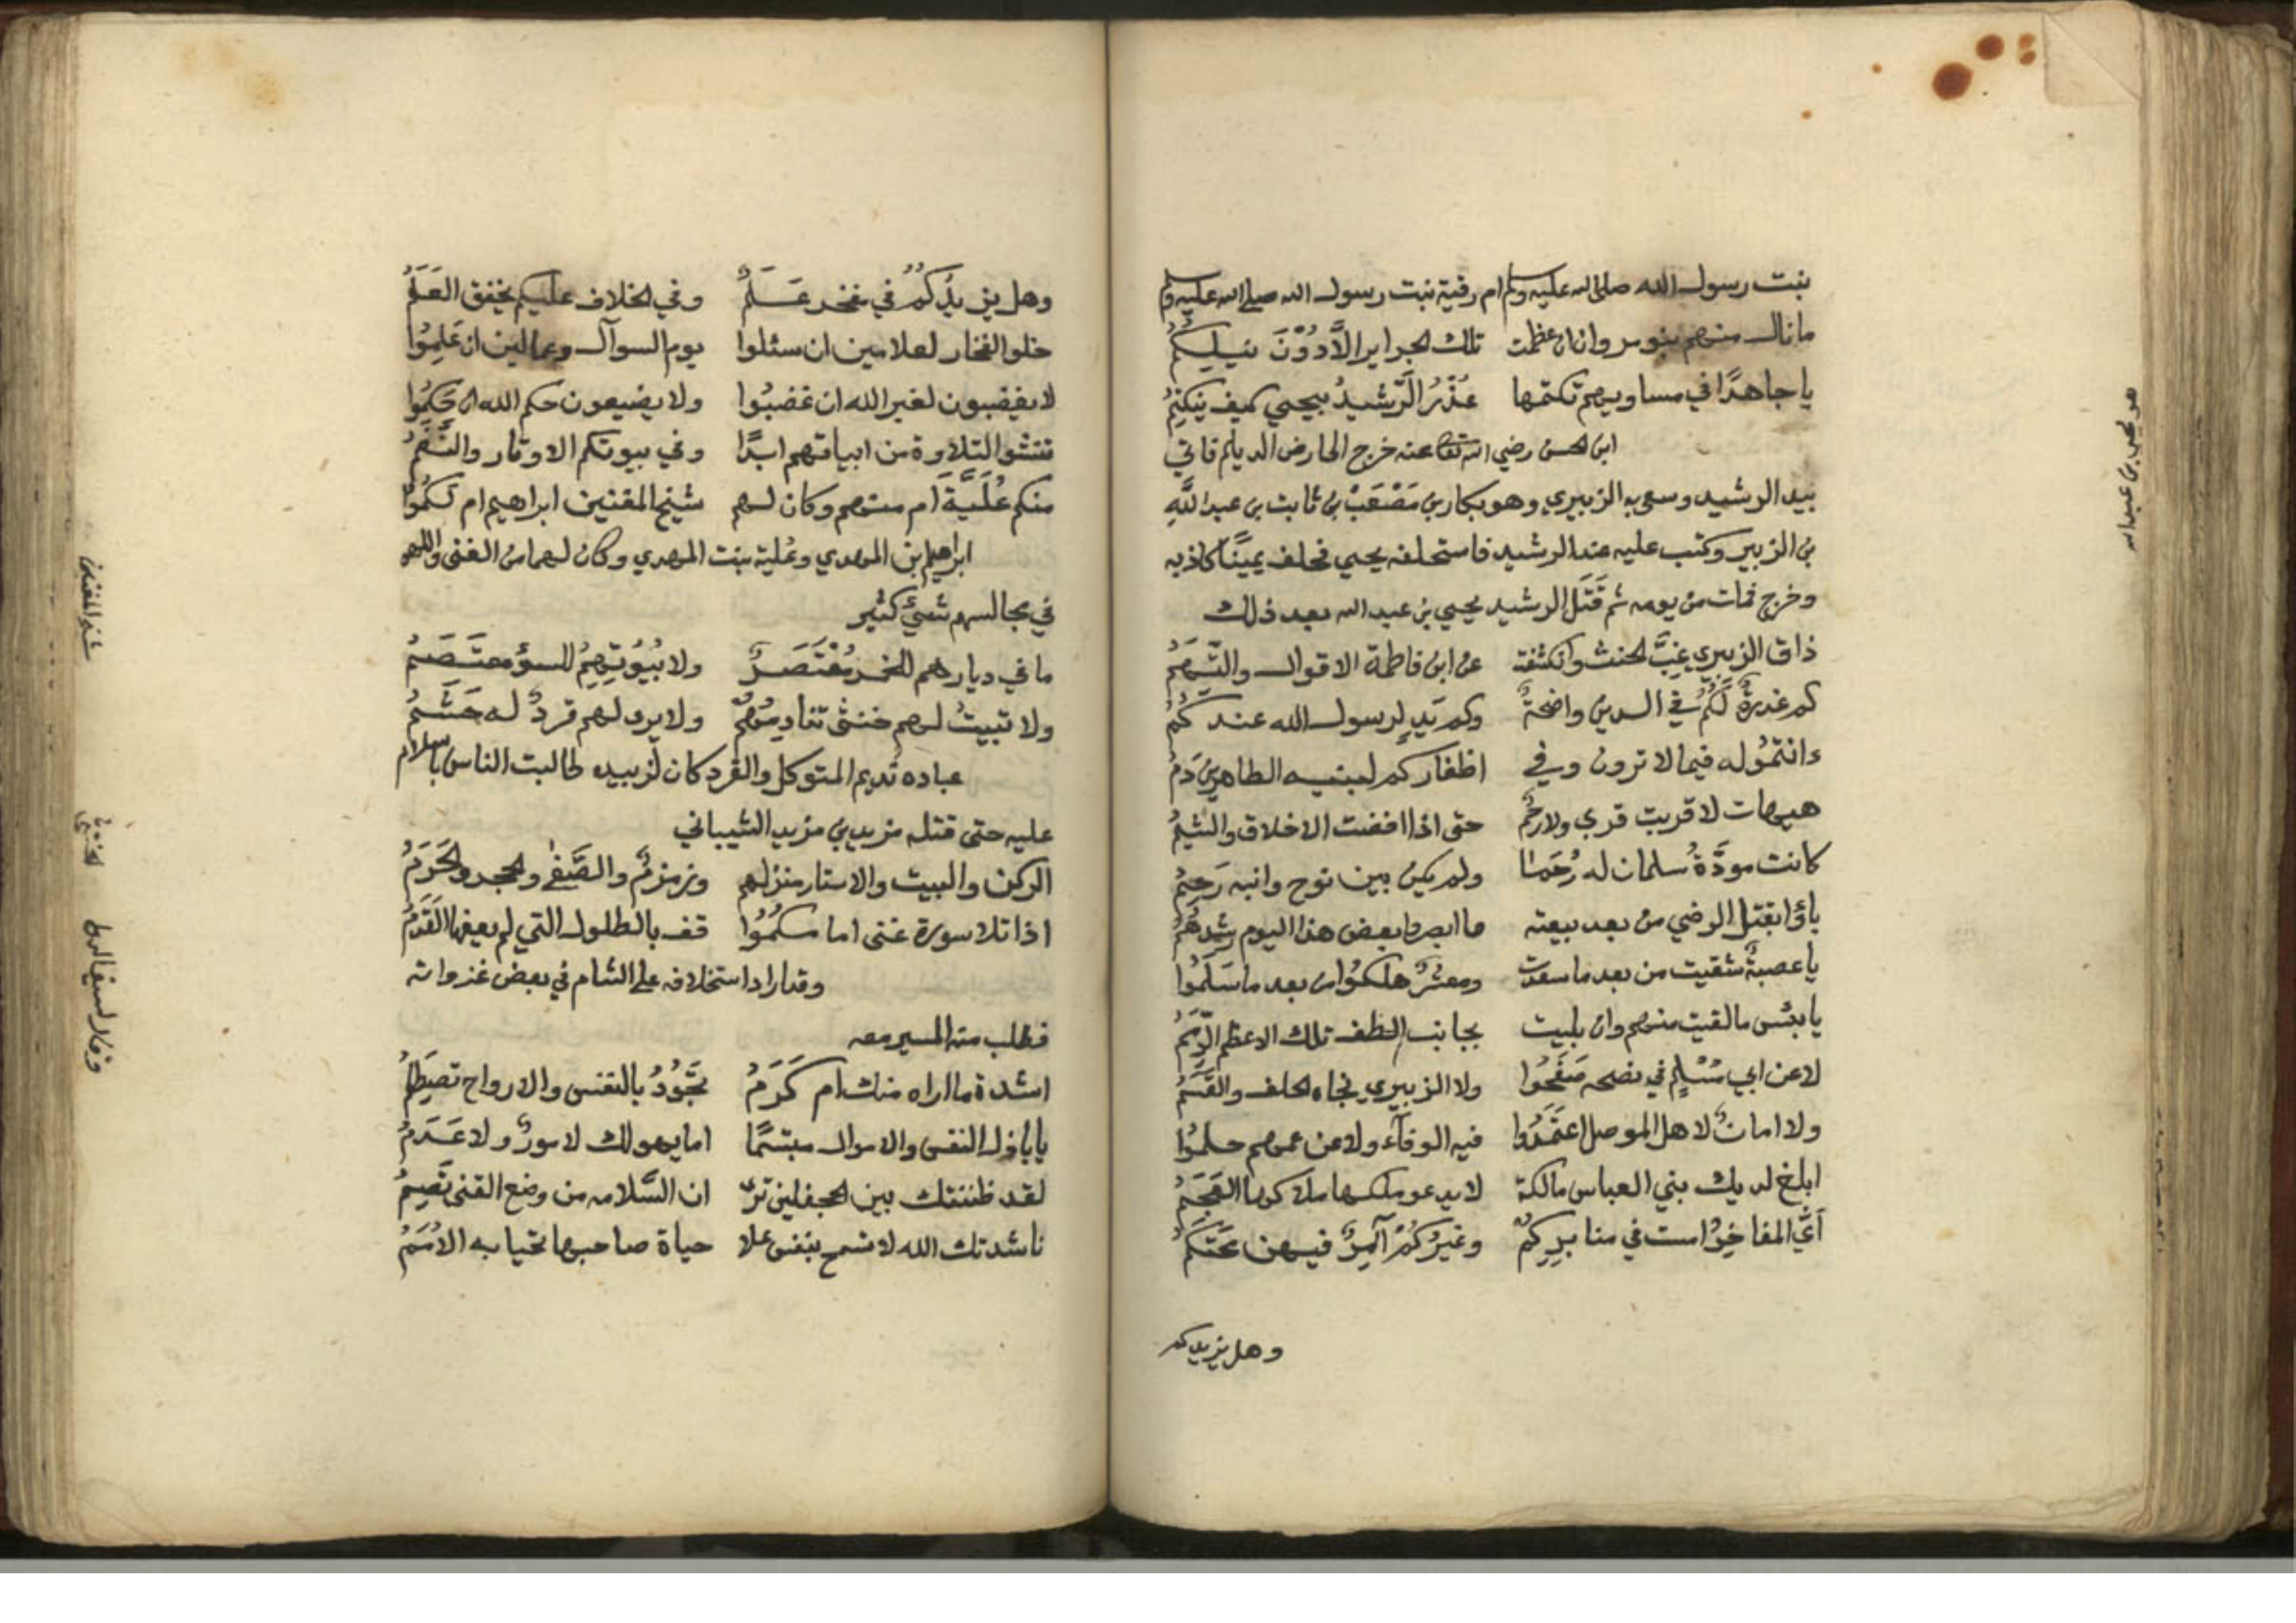 بنت رسول الله صلى الله عليه وسلم ام رقية بنت رسول الله صلى الله عليه وسلم
ما نال منهم بنو حرب وان عظمت تلك الجراير الا دون نيلكم
يا جاهدا في مساويهم تكتمها غدر الرشيد بيحيى كيف ينكتم
ابن الحسن رضي الله تعالى عنه خرج الى ارض الديلم فاتي
بيد الرشيد وسعى به الزبيري وهو بكار بن مصعب بن ثابت بن عبد الله
بن الزبير وكتب عليه عند الرشيد فاستحلفه يحيى فحلف يمينا كاذبه
وخرج فمات من يومه ثم قتل الرشيد يحيى بن عبد الله بعد ذلك
ذاق الزبيري غب الحنث وانكشفت عن ابن فاطمة الاقوال والتهم
كم غدرة لكم في الدين واضحة وكم يد لرسول الله عندكم
ءانتموله فيما لا ترون وفي اظفاركم لبنيه الطاهرين دم
هيهات لا قربت قربى ولا رحم حتى اذا افضت الاخلاق والشيم
كانت مودة سلمان له رحما ولم يكن بين نوح وابنه رحم
باؤا بقتل الرضي من بعد بيعته وا ابصروا بعض هذا اليوم رشدهم
يا عصبة شقيت من بعد ما سعدت ومعشر هلكوا من بعد ما سلموا
يا بئس ما لقيت منهم وان بليت بجانب الطف تلك الاعظم الرمم
لا عن ابي مسلم في نصحه صفحوا ولا الزبيري نجاه الحلف والقسم
ولا امان لاهل الموصل اعتمدوا فيه الوفاء ولا عن عمهم حلموا
ابلغ لديك بني العباس مالكة لا يدعو ملكها ملاكها العجم
أي المفاخر امست في منابركم وغيركم آمر فيهن محتكم
وهل يزيدكم
هو يحيى بن عبد الله
وهل يزيدكم في مفخر علم وفي الخلاف عليكم يخفق العلم
خلوا الفخار لعلامين ان سئلوا يوم السوآل وعمالين ان علموا
لا يغضبون لغير الله ان غضبوا ولا يضيعون حكم الله ان حكموا
تنشو التلاوة من ابياتهم ابدا وفي بيوتكم الاوتار والنغم
منكم علية ام منهم وكان لهم شيخ المغنين ابراهيم ام لكموا
ابراهيم بن المهدي وعلية بنت المهدي وكان لهما من الغنى واللهو
في مجالسهم شيئ كثير
ما في ديارهم للخمر معتصر ولا بيوتهم للسؤ معتصم
ولا تبيت لهم خنثى تنادمهم ولا يرى لهم قرد له حشم
عباده نديم المتوكل والقرد كان لزبيده طالبت الناس بالسلام
عليه حتى قتله مزيد بن مزيد الشيباني
الركن والبيت والاستار منزلهم وزمزم والصفى والحجر والحرم
اذا تلا سورة غنى اما مكموا قف بالطلول التي لم يعفها القدم
وقد اراد استخلافه على الشام في بعض غزواته
فطلب منه المسير معه
اشدة ما اراه منك ام كرم تجود بالنفس والارواح تصطلم
يا باذل النفس والاموال مبتسما اما يهولك لا موت ولا عدم
لقد ظننتك بين الجحفلين ترى ان السلامه من وقع القنى تصم
ناشدتك الله لا تسمح بنفس علا حياة صاحبها تحيا به الامم
شيخ المغنين
وقال لسيف الدولة